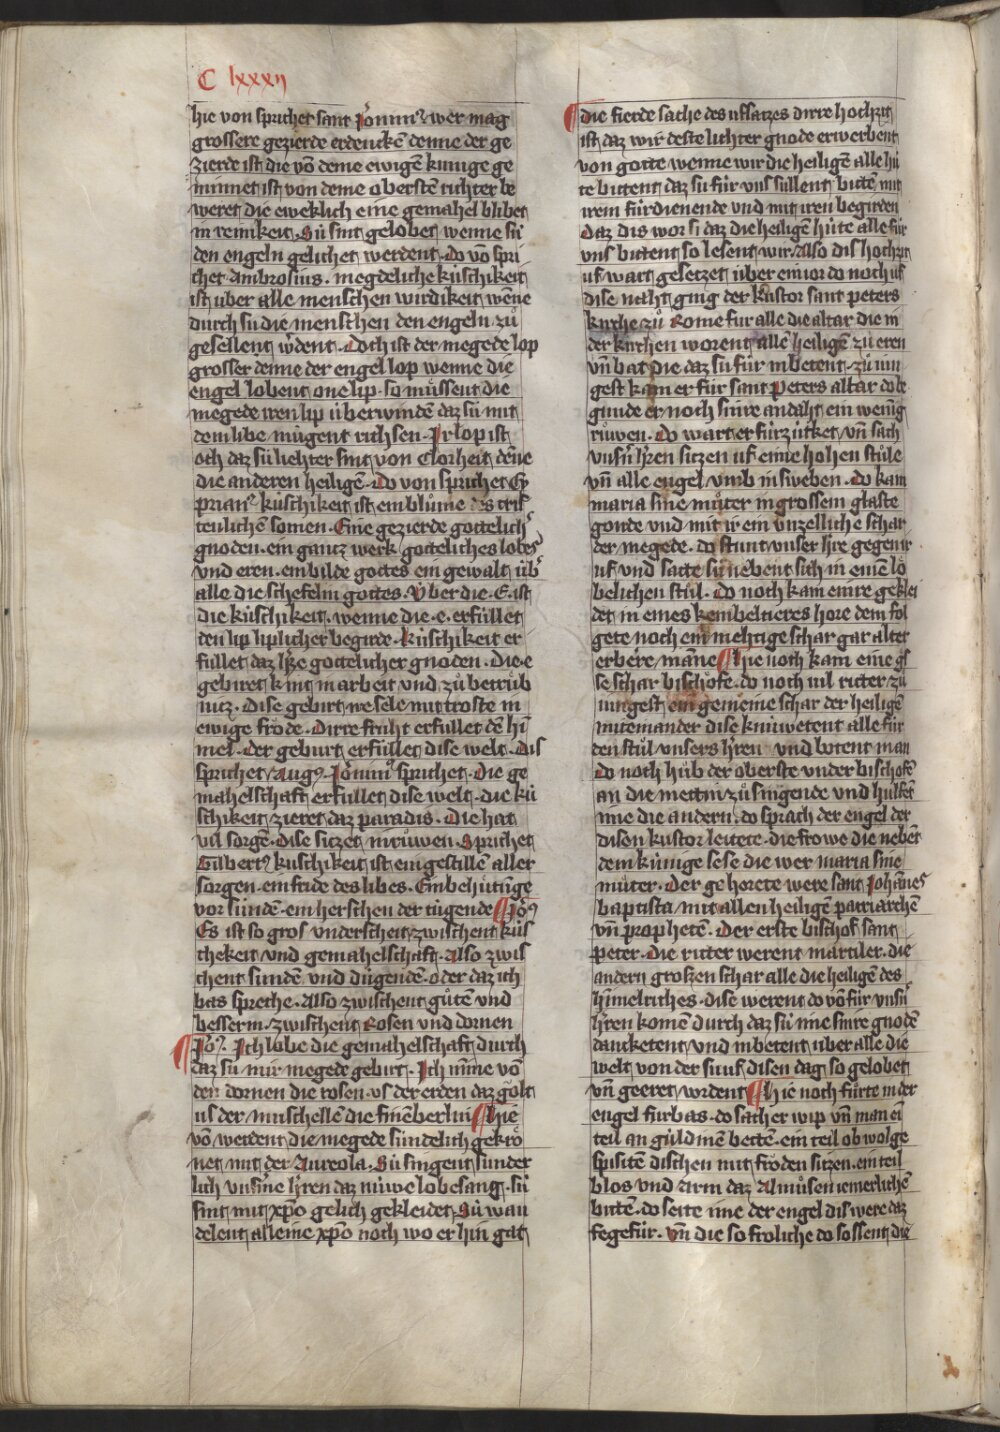 C lxxxij
hie von sprichet sant Jeronimꝰ wer mag
grossere gezierde erdencken denne der ge
zierde ist die võ deme ewigẽ kunige ge
minnet ist von deme oberstẽ richter be
weret die eweklich eine gemahel blibet
in reinikeit. Sú sint gelobet wenne sú
den engeln gelichet werdent. do võ spri
chet Ambrosius. megdeliche kúschikeit
ist uber alle menschen wirdikeit wẽne
durch sú die menschen den engeln zů
gesellent wͤdent. Doch ist der megede lop
grosser denne der engel lop wenne die
engel lobent one lip. so můssent die
megede iren lip úberwindẽ daz sú mit
dem libe mugent richsen. Jr lop ist
och daz sú liehter sint von Clorheit dẽne
die anderen heiligẽ. Do von sprichet Cy
prianꝰ. kúschikeit ist ein blůme des cris
tenlichẽ somen. Eine gezierde gottelichͬ
gnoden. ein gantz werk gotteliches lobes
vnd eren. ein bilde gottes ein gewalt úbͬ
alle die schefelin gottes. Vber die. E. ist
die kúschikeit. wenne die. e. erfúllet
den lip liplicher begirde. kúschikeit er
fúllet daz hͬze gottelicher gnoden. Die. e
gebiret kint in arbeit vnd zů betrůb
nitz. Dise gebirt we sele mit troste in
ewige frôde. Dirre frúht erfullet dẽ hi
mel. der geburt erfúllet dise welt. Dis
sprichet Augꝰ. Jeronimꝰ sprichet. Die ge
mahelschaft erfullet dise welt. die kú
schikeit zieret daz paradis. Die hat
vil sorgẽ. Dise sitzet in růwen. Sprichet
Gilbertꝰ kuschikeit ist ein gestillẽ aller
sorgen. ein fride des libes. Ein behůtunge
vor súnden. ein herschen der tugende ¶ Joꝰ
Es ist so gros vnderscheit zwischent kús
chekeit vnd gemahelschaft. Also zwis
chent sunden vnd dugenden. oder daz ich
bas spreche. Also zwischent gůten vnd
besserm. zwischent Rosen vnd dornen
¶ Joꝰ. Jch lobe die gemahelschaft durch
daz sú mir megede gebirt. Jch nime võ
den dornen die rosen. vs der erden daz golt
us der muschellẽ die fineberlin ¶ hie
võ werdent die megede sunderlich gekrô
net mit der Aureola. Sú singent sunder
lich vnsͬme hͬren daz núwe lobesang. sú
sint mit xp̃o gelich gekleidet. Sú wan
delent alleine xp̃o noch wo er hin gat
¶ die fierde sache des uffsatzes dirre hochzit
ist daz wir deste lichter gnode erwerbent
von gotte wenne wir die heiligẽ alle hú
te bittent daz sú fúr vns súllent bittẽ mit
irem fúrdienende vnd mit iren begirden
Daz dis wor si daz die heiligẽ húte alle fúr
vns bittent so lesent wir. Also dis hochzit
uf wart gesetzet. úber ein ior do noch uf
dise naht ging der kustor sant peters
kirche zů Rome fur alle die altar die in
der kirchen worent allẽ heiligẽ zú eren
vñ bat die daz sú fúr in bettent. zů iun
gest kam er fúr sant Peters altar do be
gunde er noch sinre andaht ein wenig
růwen. do wart er fúrzúcket vñ sach
vnsͬn hͬren sitzen uf eime hohen stůle
vñ alle engel vmb in sweben. do kam
maria sine můter in grossem glaste
gonde vnd mit ir ein vnzelliche schar
der megede. do stunt vnser hͬre gegen ir
uf vnd satte sú nebent sich in einẽ lo
belichen stůl. do noch kam einre geklei
det in eines kembeltieres hore dem fol
gete noch ein mehtige schar gar alter
erbere mãne ¶ hie noch kam eine gͦs
se schar bischôfe. do noch vil ritter zů
iungest ein gemeine schar der heiligẽ
mitenander dise knúwetent alle fúr
den stůl vnsers hͬren vnd botent man
Do noch hůb der oberste vnder bischofẽ
an die mettin zů singende vnd hulfẽt
ime die andern. do sprach der engel der
disen kustor leitete. die frowe die nebẽt
dem kúnige sesse die wer maria sine
můter. Der gehorete were sant Johãnes
baptista mit allen heiligẽ patriarchẽ
vñ prophetẽ. Der erste bischof sant
peter. Die ritter werent martiler. die
andern grossen schar alle die heiligẽ des
himelriches. dise werent do võ fúr vnsͬn
hͬren komẽ durch daz sú ime sinre gnodẽ
dancketent vnd in bettent uber alle die
welt. von der sú uf disen dag so gelobet
vñ geeret wrdent ¶ hie noch fůrte in der
engel furbas. do sach er wip vñ man ei
teil an gúldinẽ bettẽ. ein teil ob wolge
spisitẽ dischen mit frôden sitzen. ein teil
blos vnd arm daz almůsen iemerlichẽ
bittẽ. do seite ime der engel dis were daz
fegefúr. Vñ die so froliche do sossent die